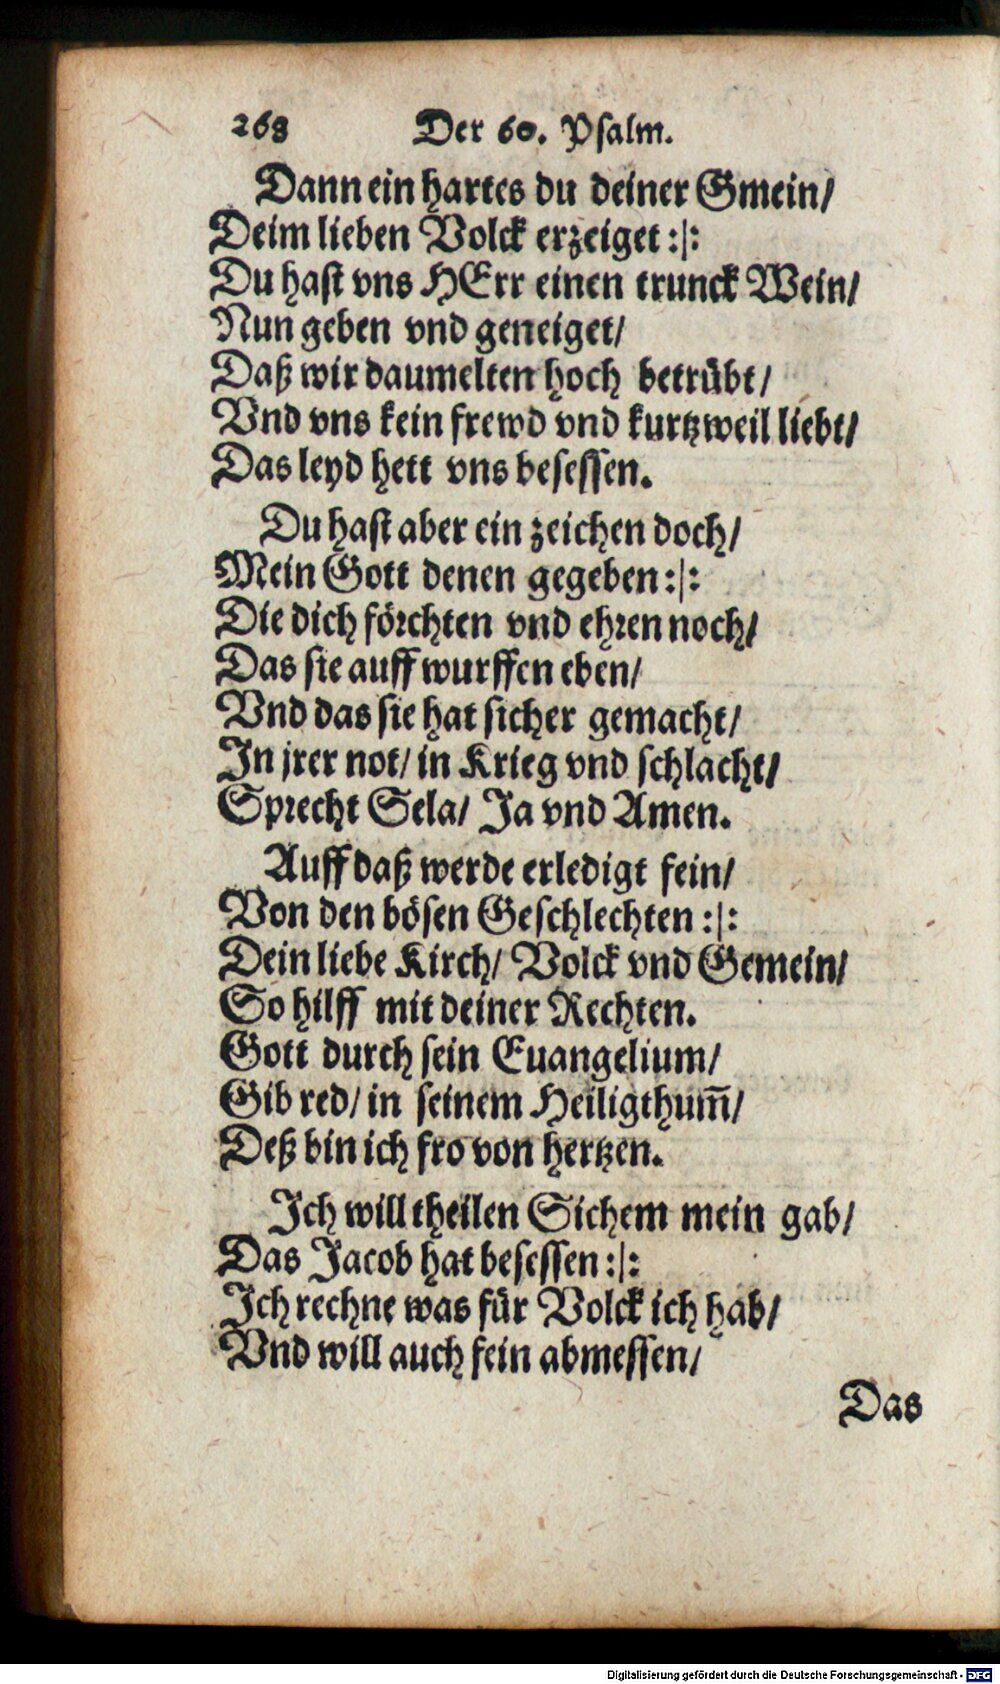 268 Der 60. Psalm.
Dann ein hartes du deiner Gmein/
Deim lieben Volck erzeiget :|:
Du hast vns HErr einen trunck Wein/
Nun geben vnd geneiget/
Daß wir daumelten hoch betrübt/
Vnd vns kein frewd vnd kurtzweil liebt/
Das leyd hett vns besessen.
Du hast aber ein zeichen doch/
Mein Gott denen gegeben :|:
Die dich förchten vnd ehren noch/
Das sie auff wurffen eben/
Vnd das sie hat sicher gemacht/
In jrer not/ in Krieg vnd schlacht/
Sprecht Sela/ Ja vnd Amen.
Auff daß werde erledigt fein/
Von den bösen Geschlechten :|:
Dein liebe Kirch/ Volck vnd Gemein/
So hilff mit deiner Rechten.
Gott durch sein Euangelium/
Gib red/ in seinem Heiligthum̃/
Deß bin ich fro von hertzen.
Ich will theilen Sichem mein gab/
Das Jacob hat besessen :|:
Ich rechne was für Volck ich hab/
Vnd will auch fein abmessen/
Das
Digitalisierung gefördert durch die Deutsche Forschungsgemeinschaft - DFG